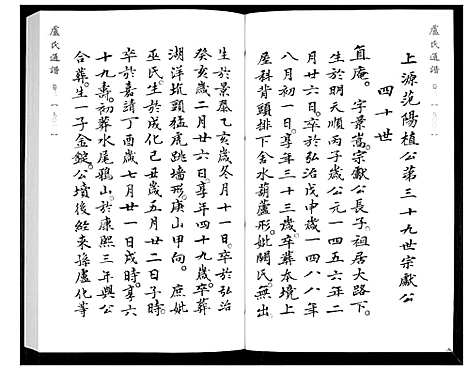 盧氏通譜
上源范陽植公第三十九世宗獻公
四十世
直庵。字景嵩宗獻公長子。祖居大路下。
生於明天順丙子歲公元一四五六年二
月廿六日。卒於弘治戊申歲一四八八年
八月初一日。享年三十三歲。卒葬本境上
屋科背頭排下金水葫蘆形。妣關氏。無出
生於景泰乙亥歲冬月十一日。卒於弘治
癸亥歲二月廿六日。享年四十九歲。卒葬
湖洋坑頭猛虎跳墙形。庚山甲向。庶妣
巫氏。生於成化己丑歲五月廿二日子時。
卒於嘉請丁酉歲七月廿一日戌時。享六
十九壽。初葬水尾鴉山。於康熙三年與公
合葬。生一子金錠。公墳後經来孫盧化等
盧氏通譜